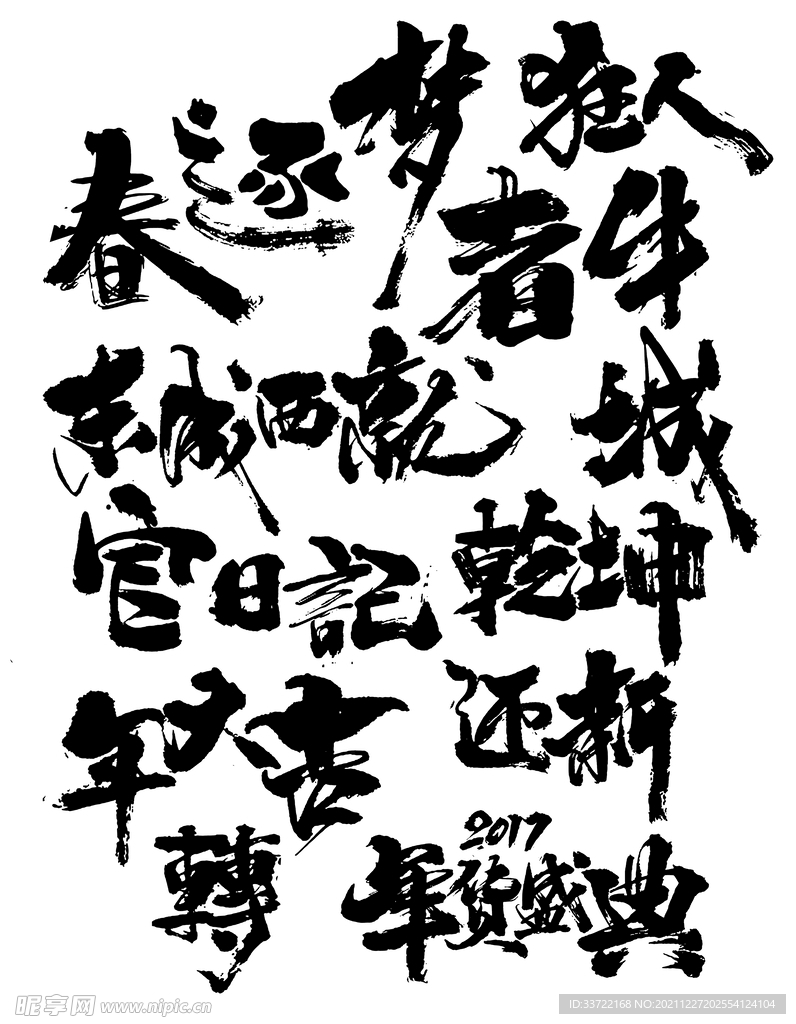 春逐梦狂人
者牛
东城西就城
官日記乾坤
年大吉还新
轉2017年货盛典
昵享网 www.nipic.cn
ID:33722168 NO:20211227202554124104